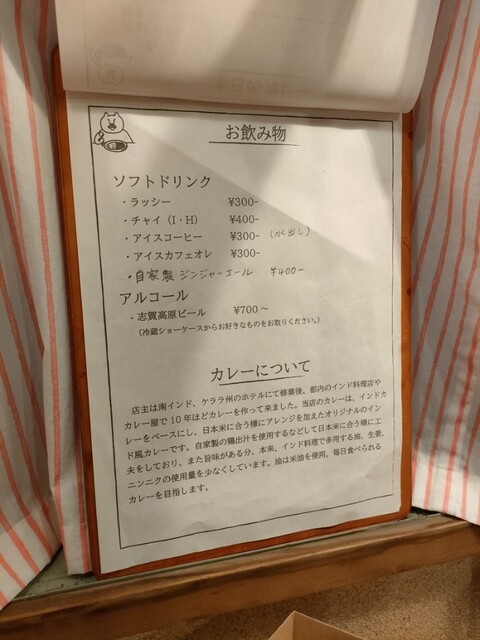 お飲み物
ソフトドリンク
・ラッシー ¥300-
・チャイ（I・H） ¥400-
・アイスコーヒー ¥300-（水出し）
・アイスカフェオレ ¥300-
・自家製 ジンジャーエール ¥400-
アルコール
・志賀高原ビール ¥700～
（冷蔵ショーケースからお好きなものをお取りください。）
カレーについて
店主は南インド、ケララ州のホテルにて修業後、都内のインド料理店や
カレー屋で10年ほどカレーを作って来ました。当店のカレーは、インドカ
レーをベースにし、日本米に合う様にアレンジを加えたオリジナルのイン
ド風カレーです。自家製の鶏出汁を使用するなどして日本米に合う様に工
夫をしており、また旨味がある分、本来、インド料理で多用する油、生姜、
ニンニクの使用量を少なくしています。油は米油を使用。毎日食べられる
カレーを目指します。